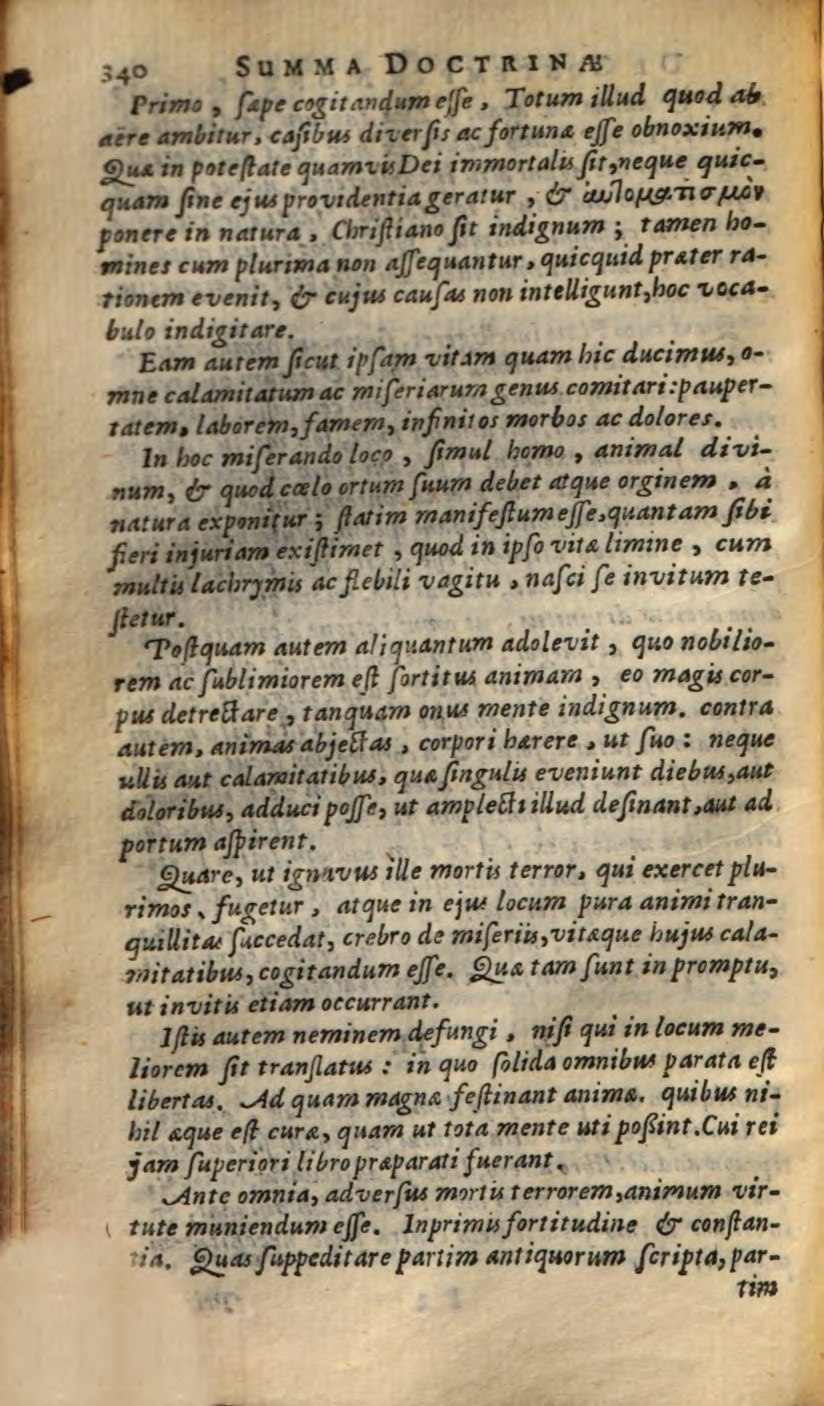 340 SUMMA DOCTRINÆ
Primo, sæpe cogitandum esse, Totum illud quod ab
aëre ambitur, casibus diversis ac fortunæ esse obnoxium.
Quæ in potestate quamvis Dei immortalis sit, neque quic-
quam sine ejus providentia geratur, & αὐτοματισμὸν
ponere in natura, Christiano sit indignum; tamen ho-
mines cum plurima non assequantur, quicquid præter ra-
tionem evenit, & cujus causas non intelligunt, hoc voca-
bulo indigitare.
Eam autem sicut ipsam vitam quam hic ducimus, o-
mne calamitatum ac miseriarum genus comitari: pauper-
tatem, laborem, famem, infinitos morbos ac dolores.
In hoc miserando loco, simul homo, animal divi-
num, & quod cœlo ortum suum debet atque orginem, à
natura exponitur; statim manifestum esse, quantam sibi
fieri injuriam existimet, quod in ipso vitæ limine, cum
multis lachrymis ac flebili vagitu, nasci se invitum te-
stetur.
Postquam autem aliquantum adolevit, quo nobilio-
rem ac sublimiorem est sortitus animam, eo magis cor-
pus detrectare, tanquam onus mente indignum. contra
autem, animas abjectas, corpori hærere, ut suo: neque
ullis aut calamitatibus, quæ singulis eveniunt diebus, aut
doloribus, adduci posse, ut amplecti illud desinant, aut ad
portum aspirent.
Quare, ut ignavus ille mortis terror, qui exercet plu-
rimos, fugetur, atque in ejus locum pura animi tran-
quillitas succedat, crebro de miseriis, vitæque hujus cala-
mitatibus, cogitandum esse. Quæ tam sunt in promptu,
ut invitis etiam occurrant.
Istis autem neminem defungi, nisi qui in locum me-
liorem sit translatus: in quo solida omnibus parata est
libertas. Ad quam magnæ festinant animæ. quibus ni-
hil æque est curæ, quam ut tota mente uti possint. Cui rei
jam superiori libro præparati fuerant.
Ante omnia, adversus mortis terrorem, animum vir-
tute muniendum esse. Inprimis fortitudine & constan-
tia. Quas suppeditare partim antiquorum scripta, par-
tim